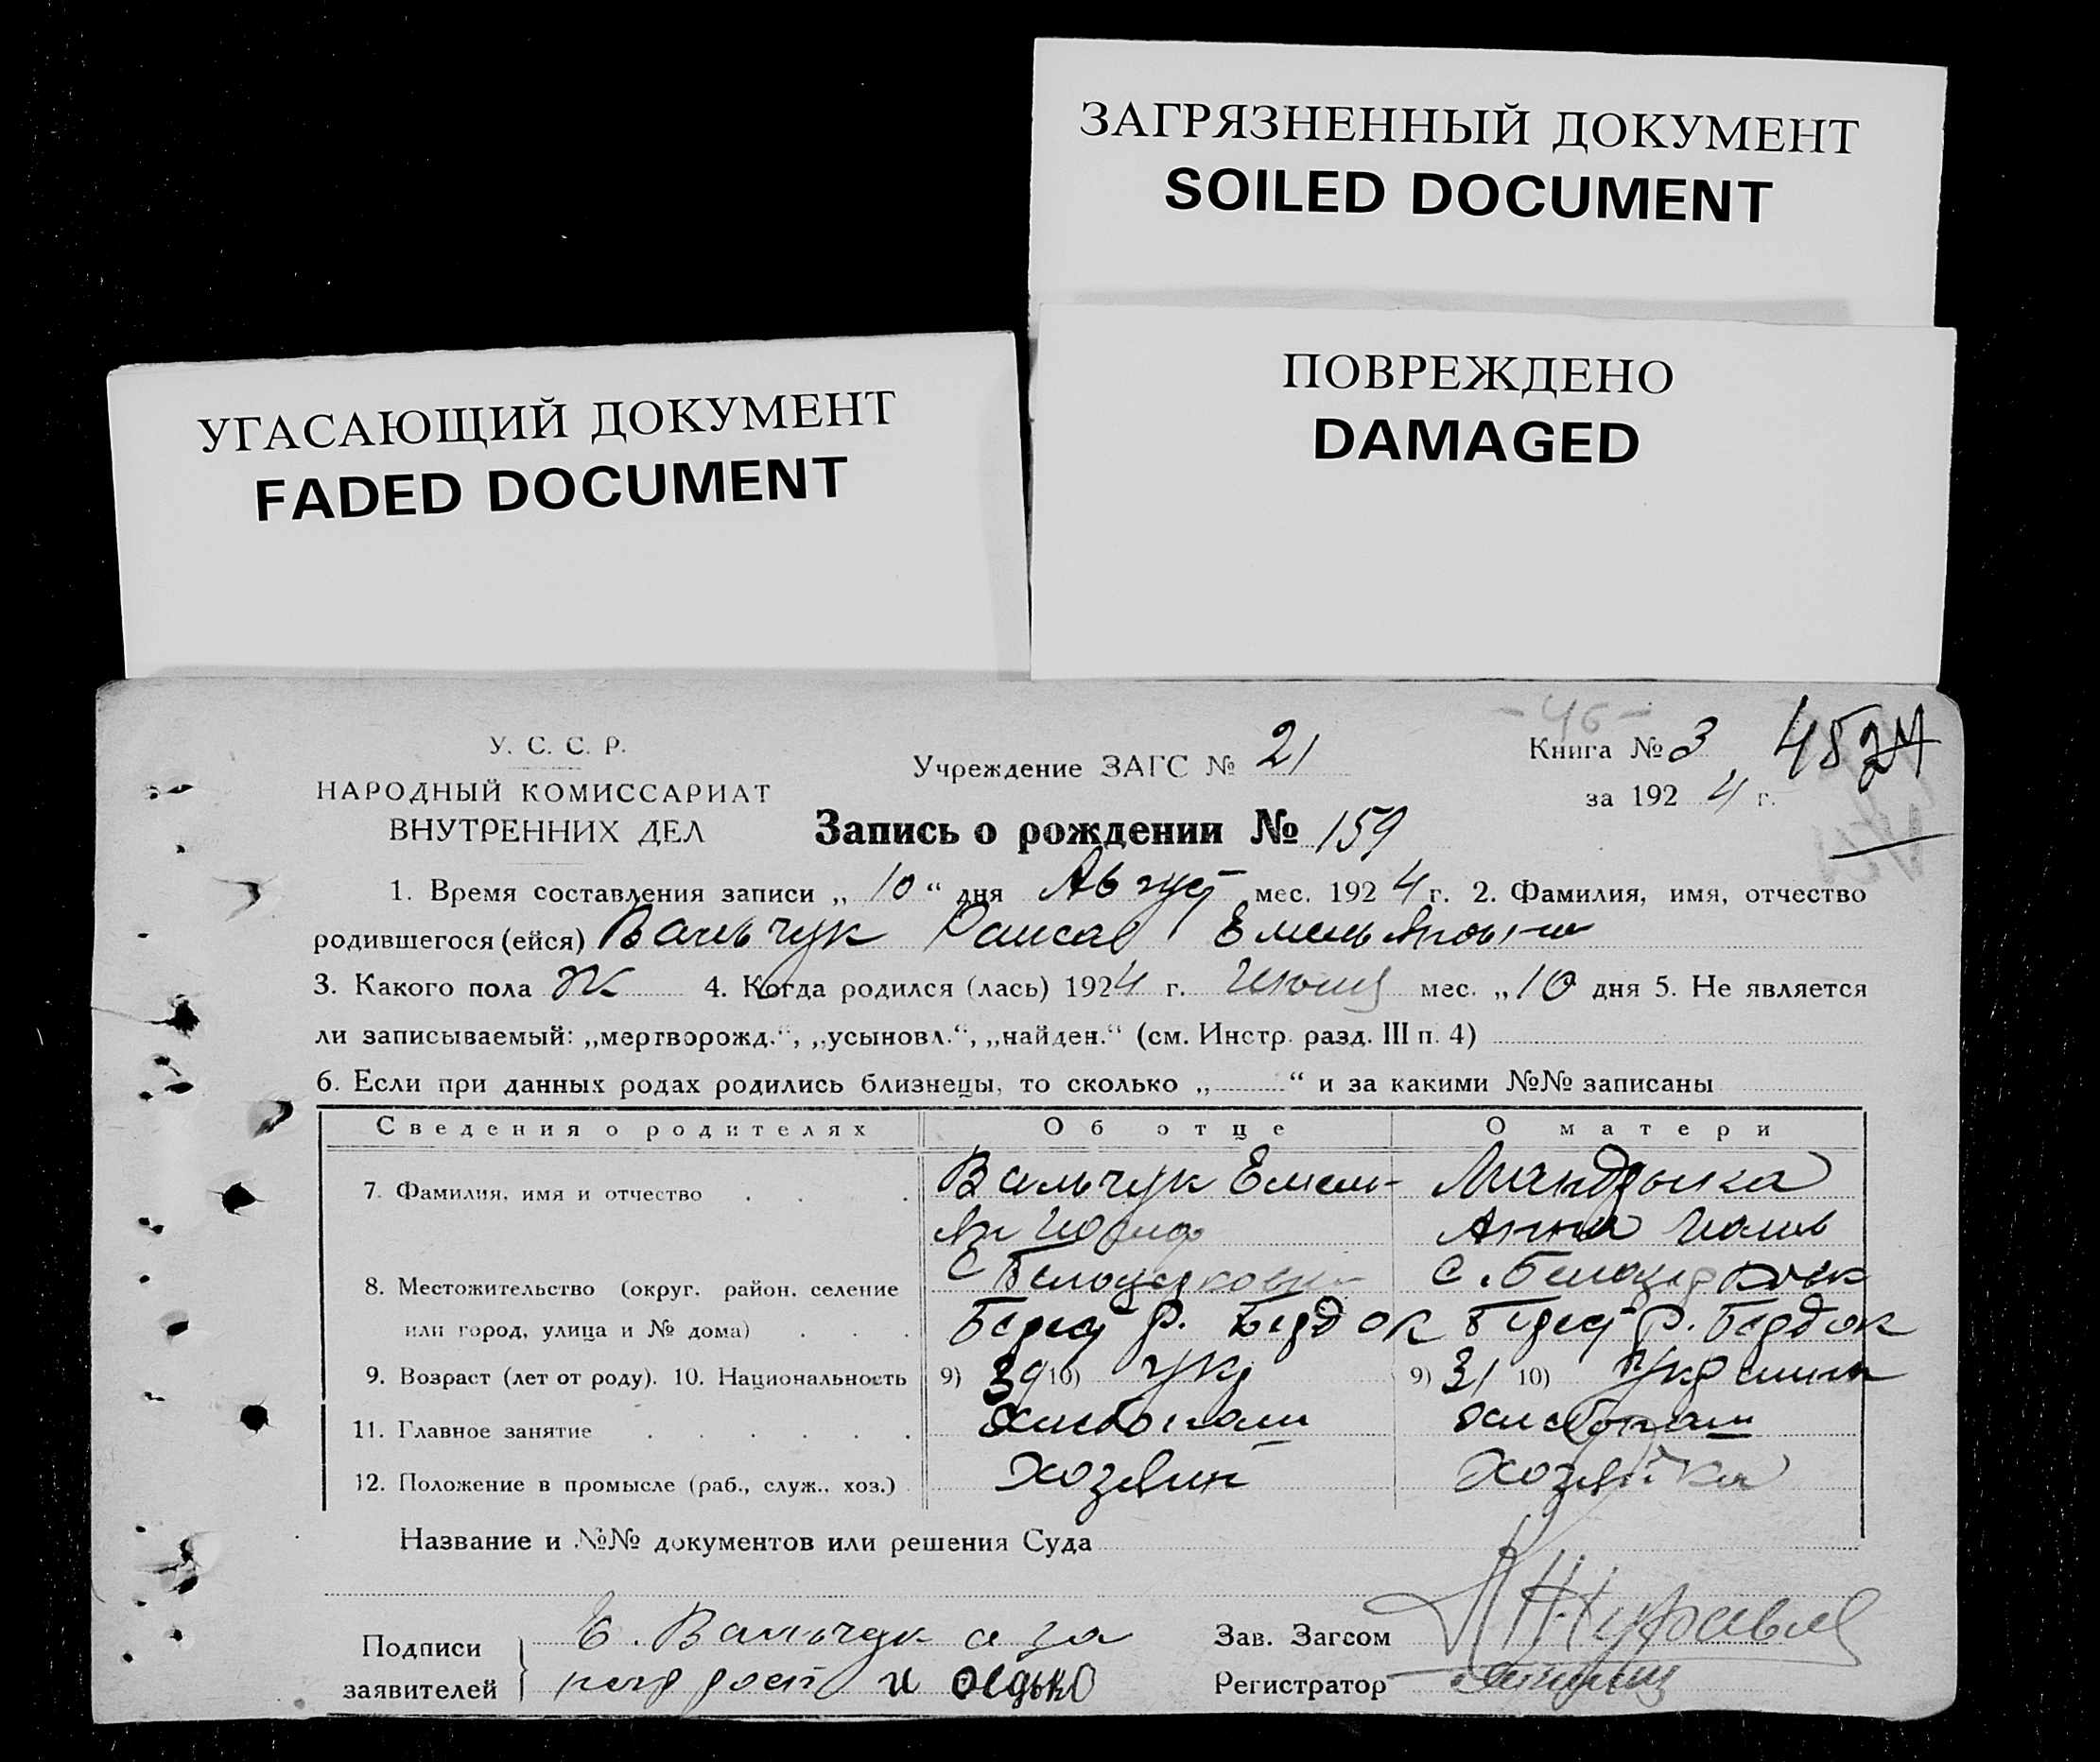 ЗАГРЯЗНЕННЫЙ ДОКУМЕНТ
SOILED DOCUMENT
УГАСАЮЩИЙ ДОКУМЕНТ
FADED DOCUMENT
ПОВРЕЖДЕНО
DAMAGED
У. С. С. Р.
НАРОДНЫЙ КОМИССАРИАТ
ВНУТРЕННИХ ДЕЛ
Учреждение ЗАГС № 21
Книга № 3
за 1924 г.
Запись о рождении № 159
1. Время составления записи „ 10 “ дня Август мес. 1924 г. 2. Фамилия, имя, отчество
родившегося (ейся) Вальчук Раиса
3. Какого пола Ж 4. Когда родился (лась) 1924 г. мес. „ 10 дня 5. Не является
ли записываемый: „мертворожд.“, „усыновл.“, „найден.“ (см. Инстр. разд. III п. 4)
6. Если при данных родах родились близнецы, то сколько „ “ и за какими №№ записаны
Сведения о родителях Об отце О матери
7. Фамилия, имя и отчество Вальчук Емель- Мандзыка
Анна
8. Местожительство (округ, район, селение С С. Белоцерковк
или город, улица и № дома) Берест р. Бердок Берест р. Бердок
9. Возраст (лет от роду). 10. Национальность 9) 39 10) Укр 9) 31 10)
11. Главное занятие
12. Положение в промысле (раб., служ., хоз.) Хозяин Хозяйка
Название и №№ документов или решения Суда
Подписи
заявителей
Е. Вальчук а за
Зав. Загсом
Регистратор